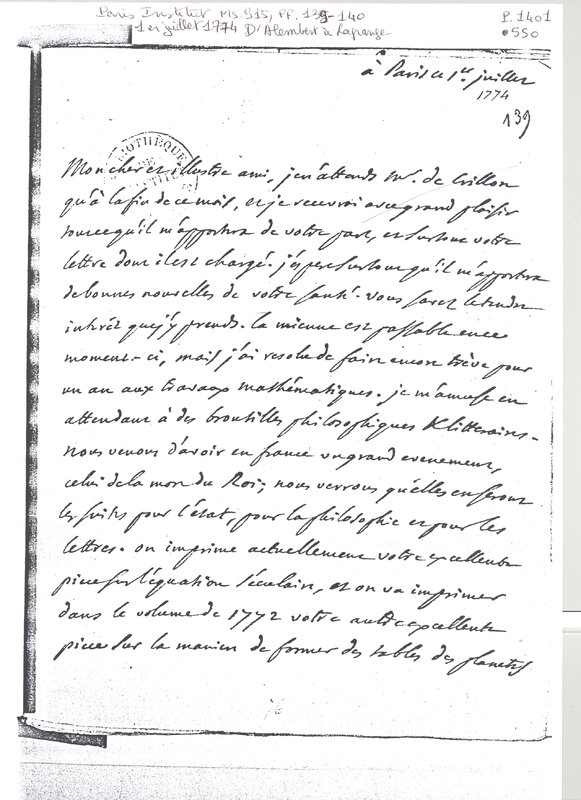 Paris Institut Ms 915, ff. 139-140
1er juillet 1774 D'Alembert à Lagrange
P. 1401
•550
à Paris ce 1er juillet
1774
139
Mon cher et illustre ami, je n'attends Mr. de Crillon
qu'à la fin de ce mois, et je recevrai avec grand plaisir
tout ce qu'il m'apportera de votre part, et surtout votre
lettre dont il est chargé. j'espere surtout qu'il m'apportera
de bonnes nouvelles de votre santé. vous savez le tendre
intérêt que j'y prends. la mienne est passable en ce
moment-ci, mais j'ai resolu de faire encore trève pour
un an aux travaux mathématiques. je m'amuse en
attendant à des broutilles philosophiques & litteraires.
Nous venons d'avoir en france un grand evenement,
celui de la mort du Roi; nous verrons quelles en seront
les suites pour l'état, pour la philosophie et pour les
lettres. on imprime actuellement votre excellente
piece sur l'équation séculaire, et on va imprimer
dans le volume de 1772 votre autre excellente
piece sur la maniere de former des tables des planetes